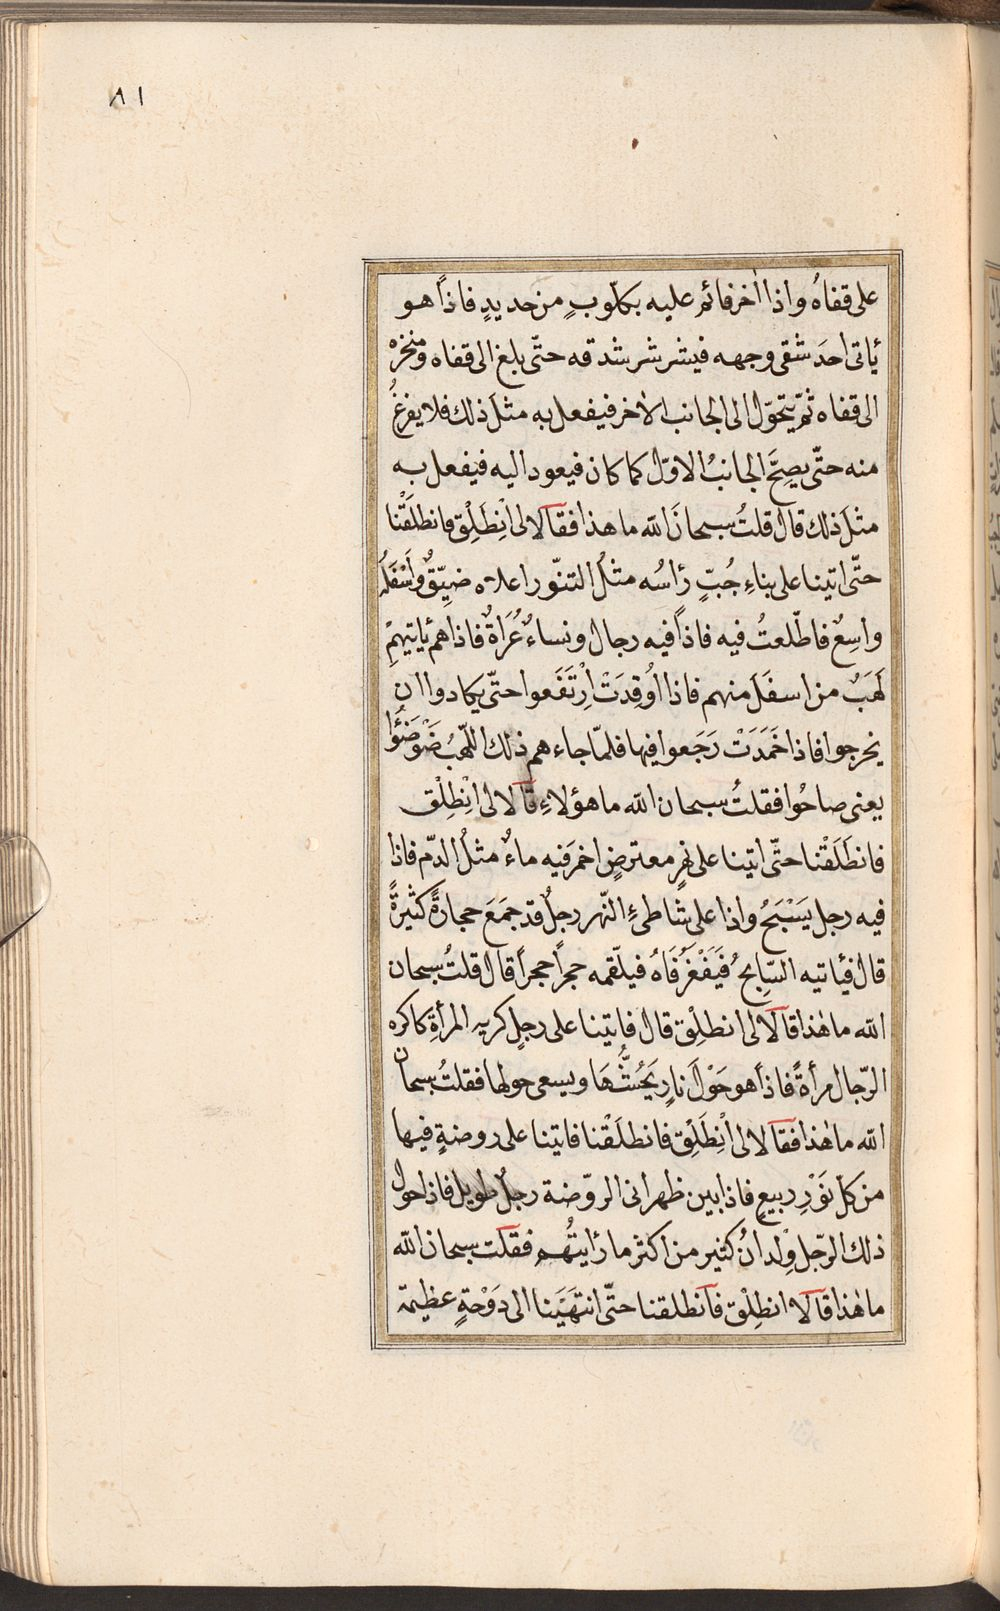 ٨١
على قفاهُ واذا اٰخر قائم عليه بكلوبٍ من حديدٍ فاذاً هو
يأتى احدَ شقى وجهه فيشرشر شدقه حتّى بلغ الى قفاه ومنخره
الى قفاه ثمّ يتحوّل الى الجانب الاٰخر فيفعل به مثلَ ذلك فلا يفرغُ
منه حتّى يصِحَّ الجانبُ الاوّل كما كان فيعود اليه فيفعل به
مثلَ ذلك قال قلتُ سبحانَ الله ما هذا فقالا لى اِنْطَلِقْ فانطلَقْنا
حتّى اتينا على بناءِ جُبٍّ رأسُه مثلُ التنّور اعلاه ضيّقٌ واَسْفَلُه
واسِعٌ فاطّلعتُ فيه فاذاً فيه رجال ونساءٌ عُرَاةٌ فاذا هم يأتيهِمْ
لَهَبٌ من اسفلَ منهم فاذا اُوقِدَتْ اِرْتَفَعوا حتّى يكادوا ان
يخرجوا فاذا خَمَدَتْ رَجَعوا فيها فلمّا جاءهم ذلك اللّهبُ ضَوْضَئُوا
يعنى صاحُوا فقلتُ سبحان الله ما هؤلاءِ قالا لى اِنْطِلْق
فانطَلَقْنا حتّى اتينا على نهرٍ معترضٍ احمرَ فيه ماءٌ مثلُ الدّم فاذا
فيه رجل يَسْبَحُ واذا على شاطىءِ النّهر رجلٌ قد جمَعَ حجارةً كثيرةً
قال فيأتيه السّابحُ فَيَفْغَرُ فَاهُ فيلقّمه حجراً حجراً قال قلتُ سبحان
الله ما هٰذا قالا لى انطلِقْ قال فاتينا على رجلٍ كريه المرأةِ كاكره
الرّجال مرأةً فاذاً هو حَوْلَ نارٍ يَحُشُّهَا ويسعى حولها فقلتُ سبحان
الله ما هٰذا فقالا لى اِنْطَلِقْ فانطلَقْنا فاتينا على روضةٍ فيها
من كلّ نَوْرِ ربيعٍ فاذا بين ظهرانى الروّضة رجلٌ طويل فاذا حول
ذلك الرّجل وِلْدانٌ كثير من اكثر ما رأيتُهم فقلت سبحان الله
ما هٰذا قالا انطلِقْ فانطلقنا حتّى انتهَيْنا الى دَوْحةٍ عظيمة